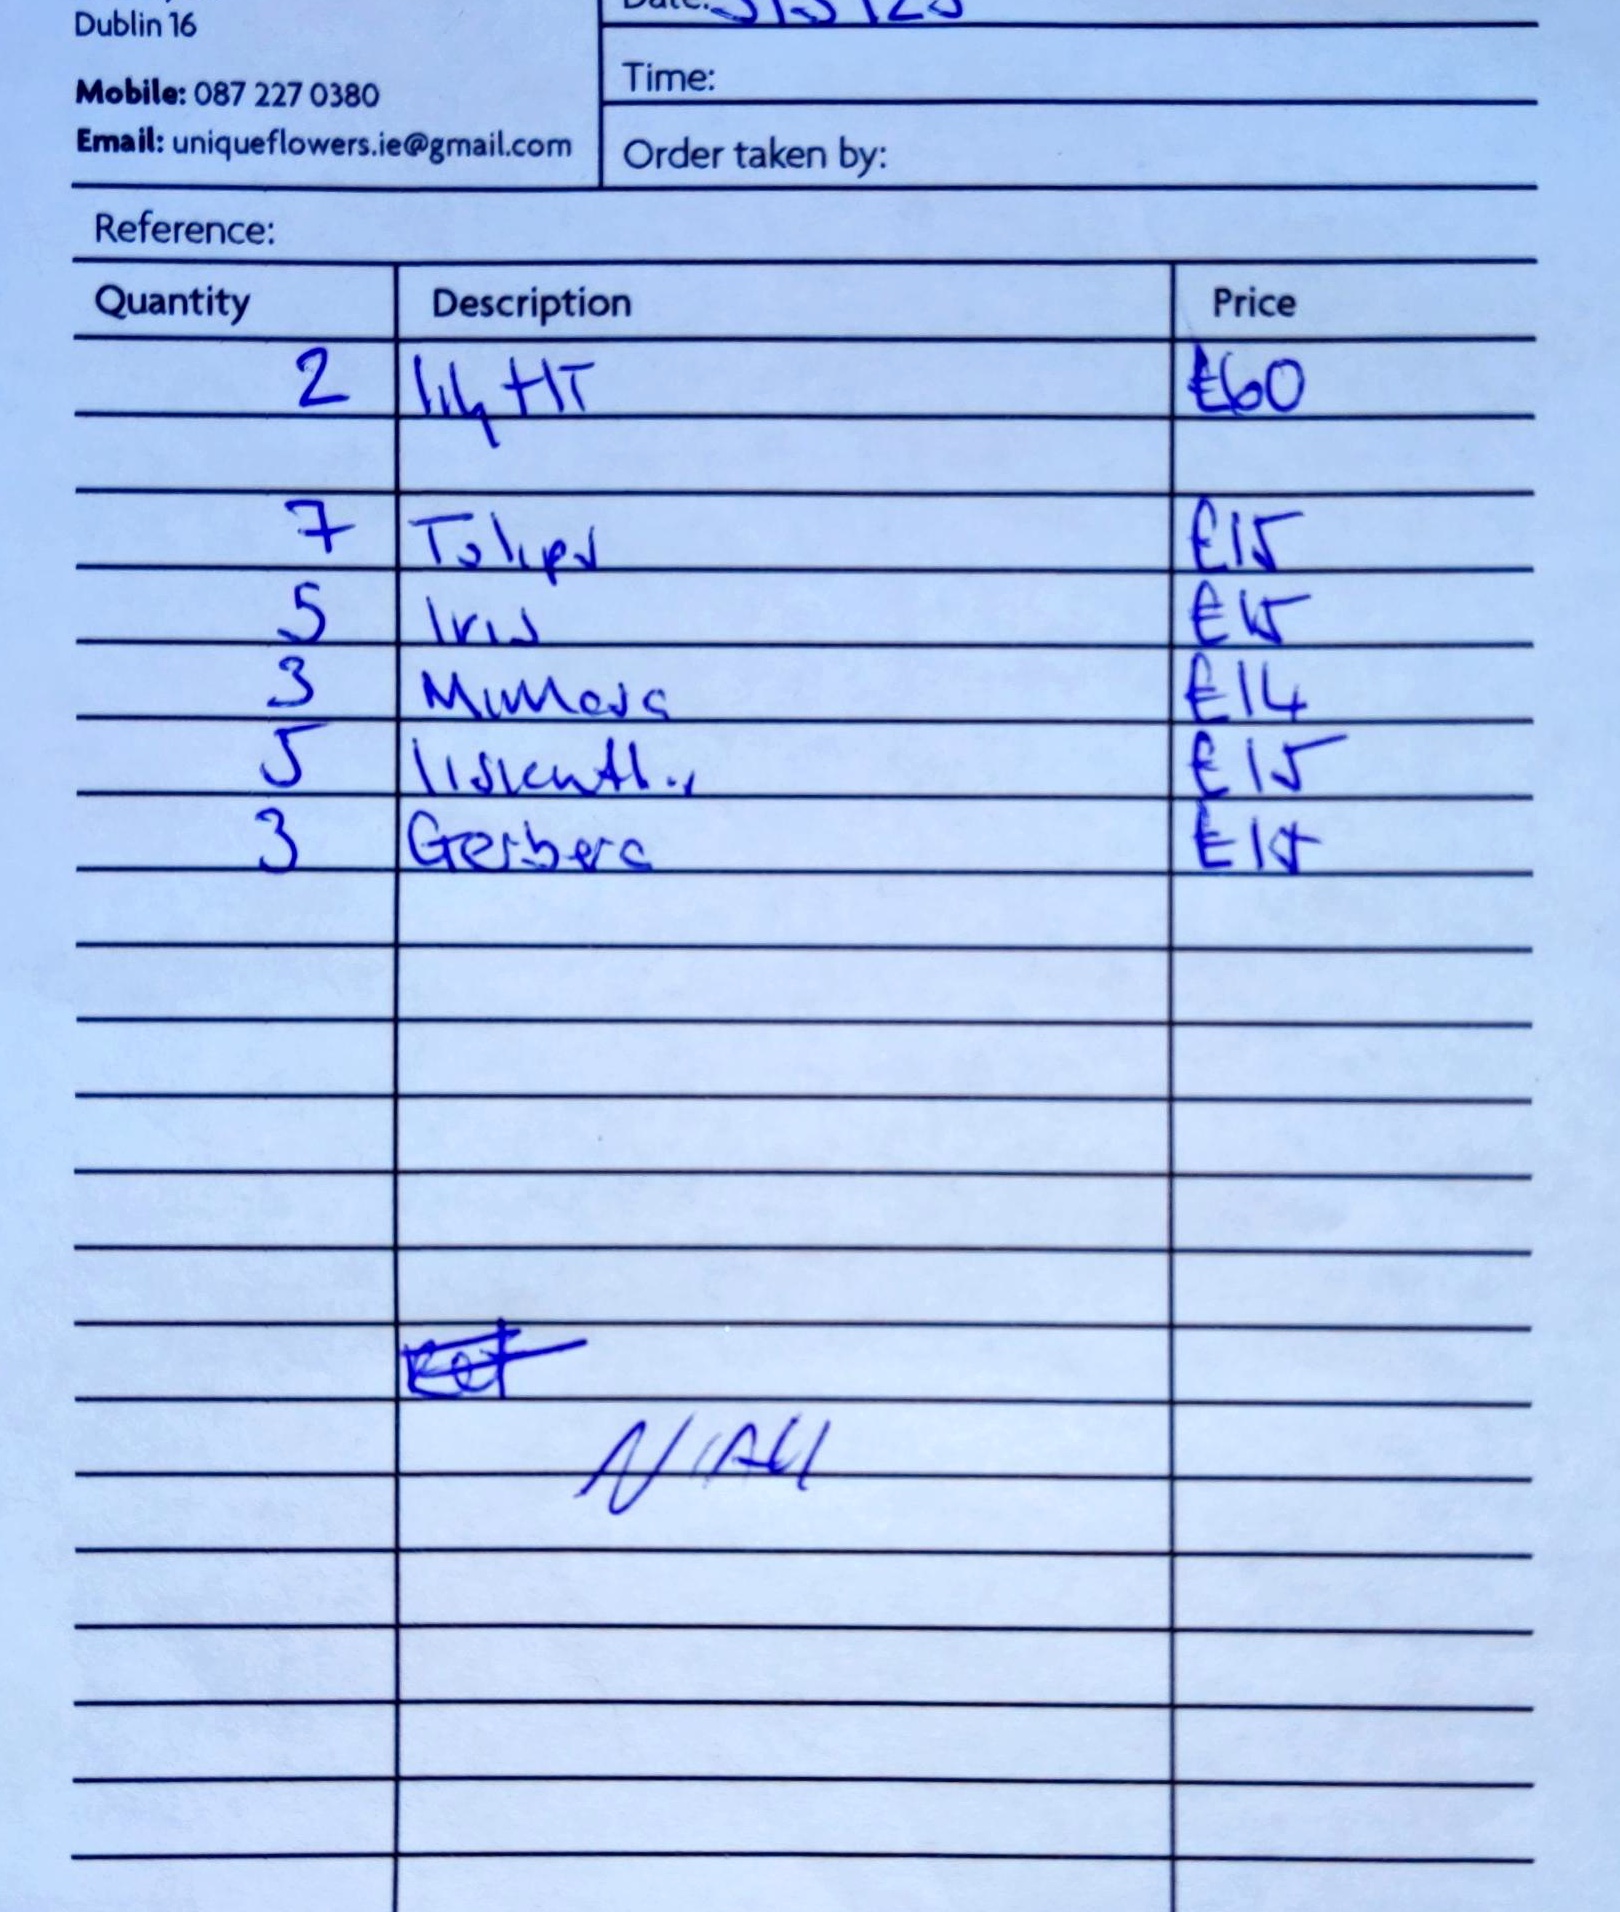 Dublin 16
Mobile: 087 227 0380
Email: uniqueflowers.ie@gmail.com
Date:
Time:
Order taken by:
Reference:
Quantity Description Price
2 lily HT €60
7 Tulips €15
5 Iris €15
3 Mimosa €14
5 €15
3 Gerbera
NIALL